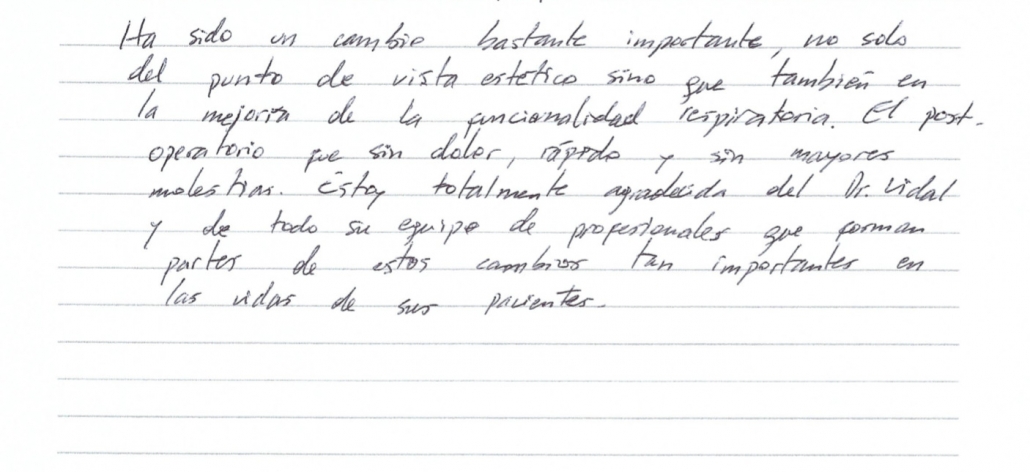 Ha sido un cambio bastante importante, no solo
del punto de vista estético sino que también en
la mejoria de la funcionalidad respiratoria. El post-
operatorio fue sin dolor, rápido y sin mayores
molestias. Estoy totalmente agradecida del Dr. Vidal
y de todo su equipo de profesionales que forman
partes de estos cambios tan importantes en
las vidas de sus pacientes.